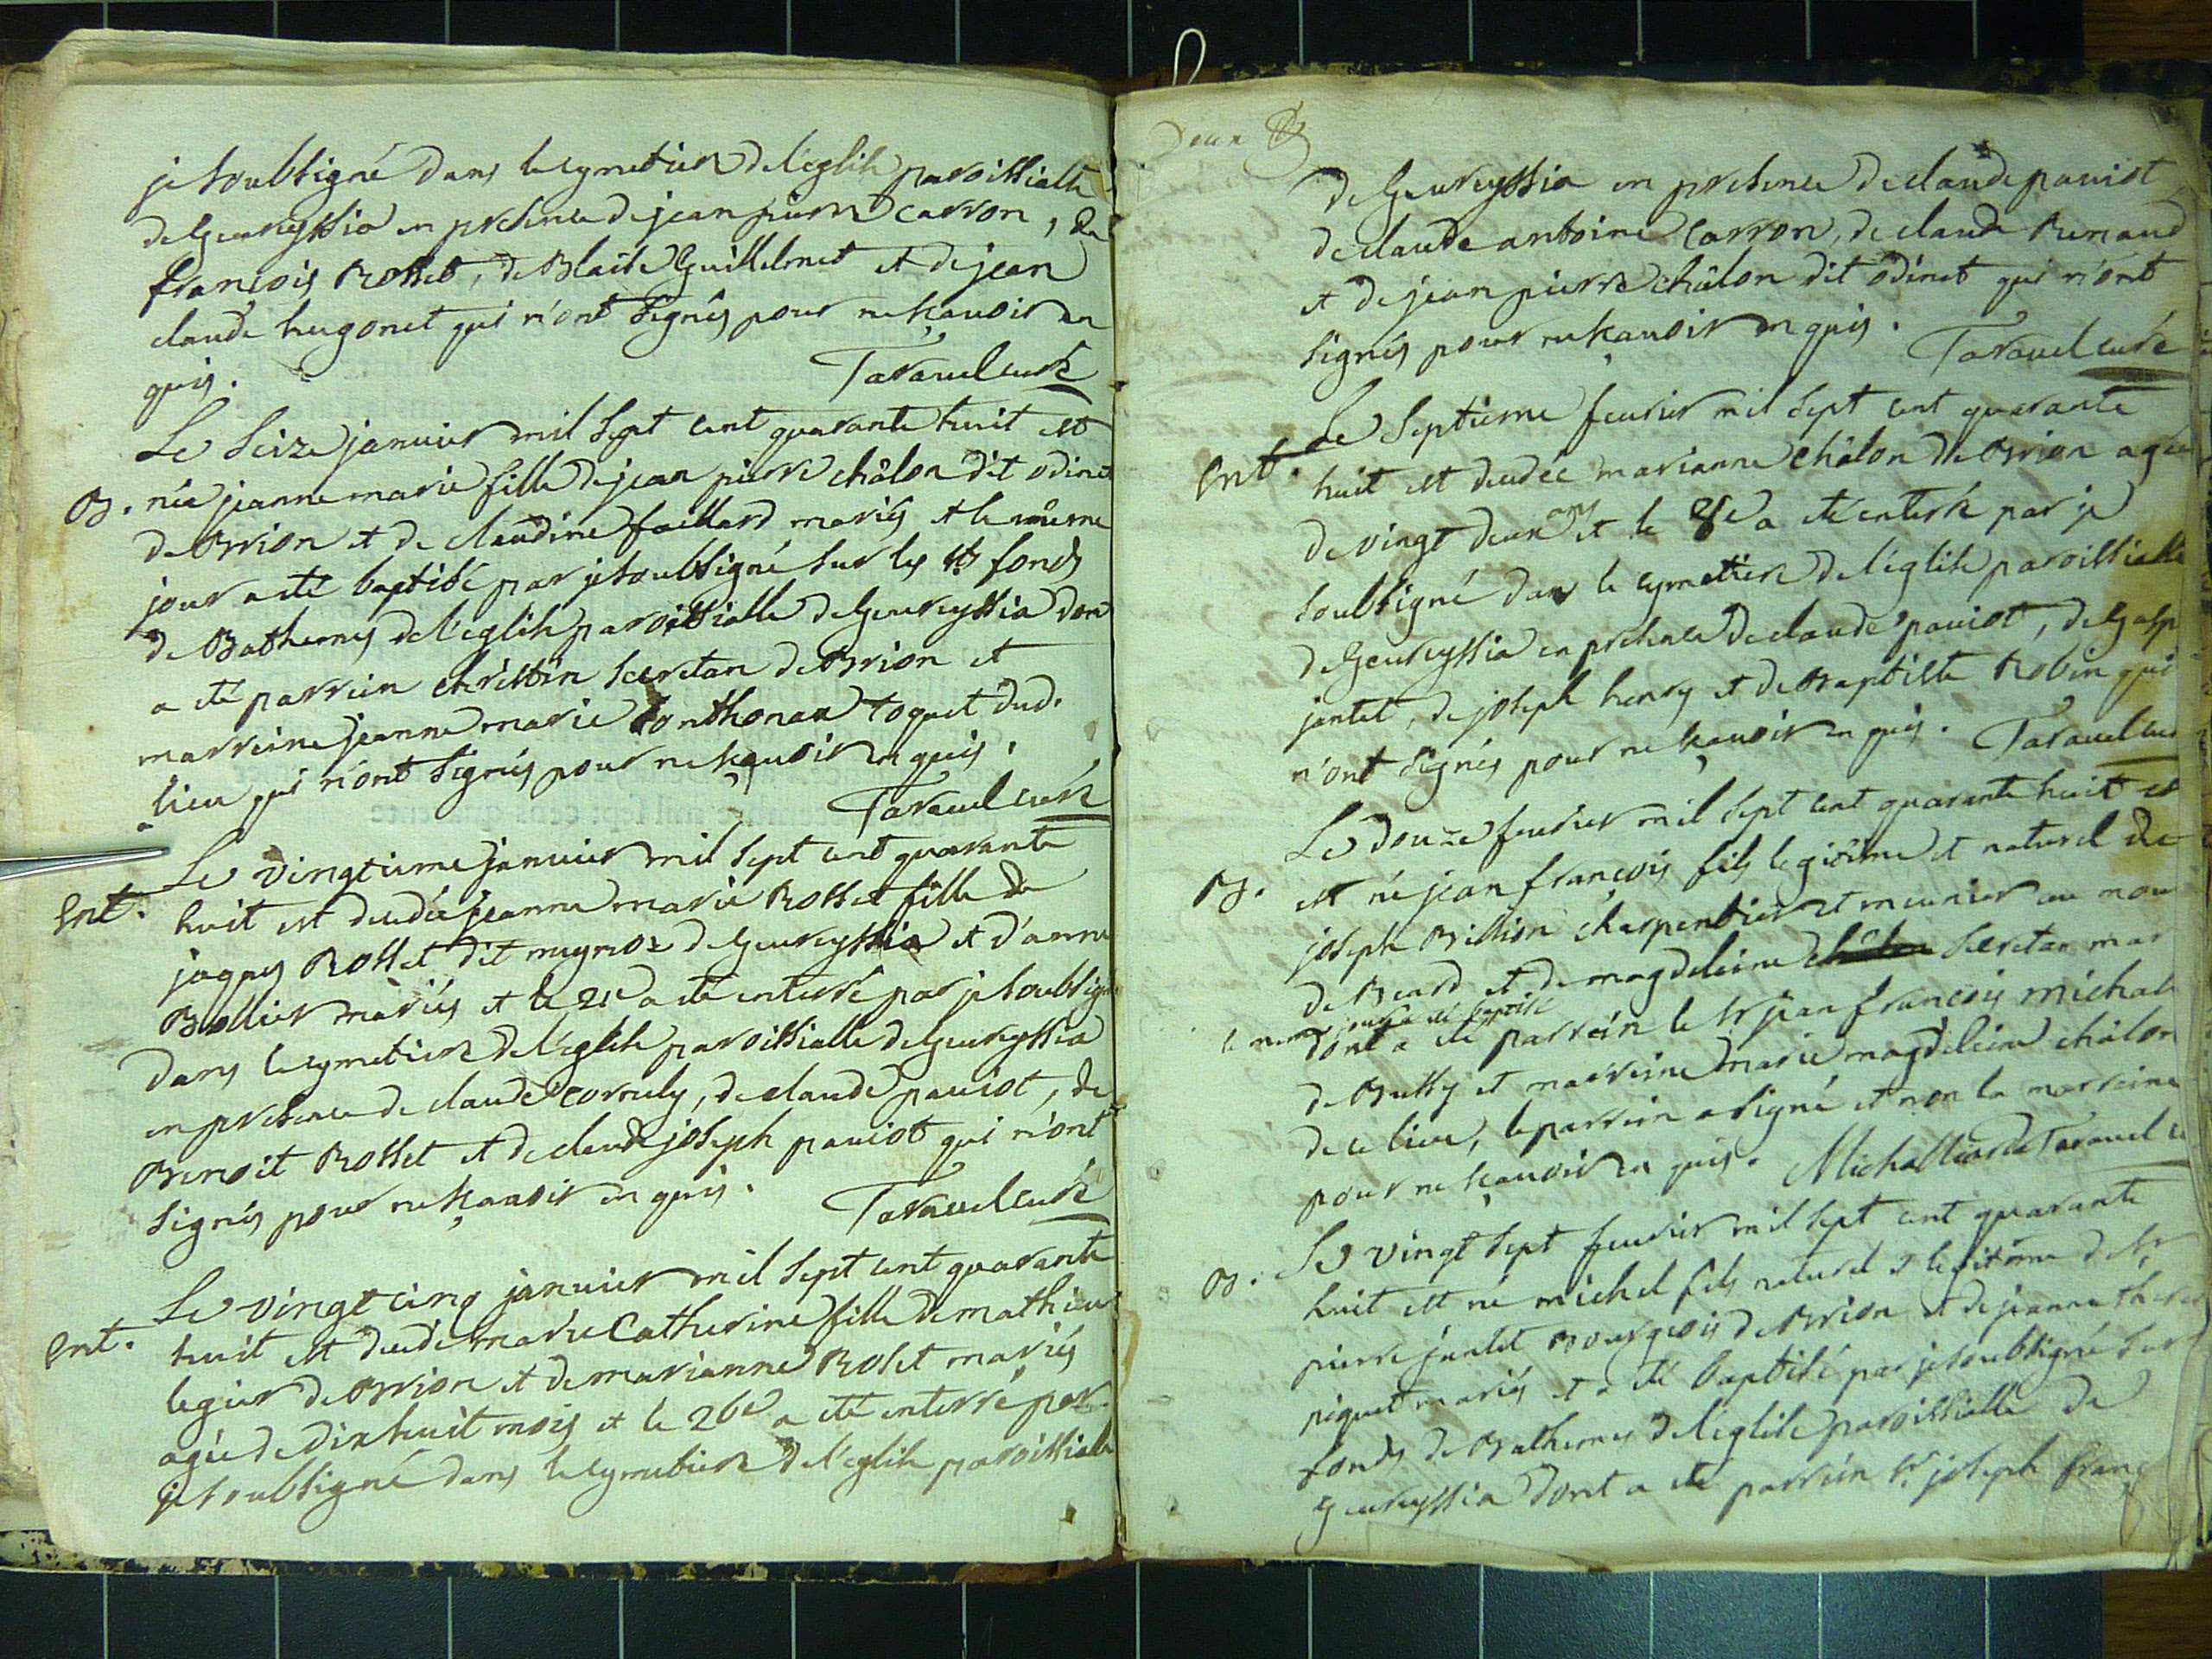 je soubsigné dans le cymetiere de l'eglise paroissialle
de Geureyssia en presence de jean pierre carron, de
françois Rosset, de Blaise Guillelmet et de jean
claude hugonet qui n'ont signés pour ne sçavoir en
quis. Taravel curé
Le seize janvier mil sept cent quarante huit est
B. née jeanne marie fille de jean pierre châlon dit odinet
de Brion et de claudine faillard mariés et le même
jour a été baptisé par je soubsigné sur les sts fonds
de Bathemes de l'eglise paroissialle de Geureyssia dont
a été parrein christin secretan de Brion et
marreine jeanne marie Tonthonax toquet dud.
lieu qui n'ont signés pour ne sçavoir en quis.
Taravel curé
Le vingtieme janvier mil sept cent quarante
Ent. huit est decedée jeanne marie Rosset fille de
jaques Rosset dit mugnoz de Geureyssia et d'anne
Bollier mariés et le 21e a été enterré par je soubsigné
dans le cymetiere de l'eglise paroissialle de Geureyssia
en presence de claude corruly, de claude paviot, de
Benoit Rosset et de claude joseph paviot qui n'ont
signés pour ne sçavoir en quis. Taravel curé
Le vingt cinq janvier mil sept cent quarante
Ent. huit est decede marie Catherine fille de mathieu
legier de Brion et de marianne Roset mariés
agée de dix huit mois et le 26e a été enterré par
je soubsigné dans le cymetiere de l'eglise paroissialle
Deux
de Geureyssia en presence de claude paviot
de claude antoine Carron, de claude Renaud
et de jean pierre châlon dit odinet qui n'ont
signés pour ne sçavoir en quis. Taravel curé
Le septieme fevrier mil sept cent quarante
Ent. huit est decedée marianne châlon de Brion agée
de vingt deux ans et le 8e a été enterré par je
soubsigné dans le cymetiere de l'eglise paroissialle
de Geureyssia en presence de claude paviot, de Gasp
jantet, de joseph henry et de Baptiste Robin qui
n'ont signés pour ne sçavoir en quis. Taravel cur
Le douze fevrier mil sept cent quarante huit est
B. est né jean françois fils legitime et naturel de
joseph Billion charpentier et meunier au mou
de Beard et de magdeleine secretan mar
le meme jour a été baptisé
dont a été parrein le sr jean françois michal
de Bussy et marreine marie magdeleine châlon
de ce lieu, le parrein a signé et non la marreine
pour ne sçavoir en quis. Michalliard Taravel c
Le vingt sept fevrier mil sept cent quarante
B. huit est né michel fils naturel et legitime de sr
pierre jantet Bourgeois de Brion et de jeanne there
piquet mariés et a été baptisé par je soubsigné sur
fonds de Bathemes de l'eglise paroissialle de
Geureyssia dont a été parrein sr joseph franç